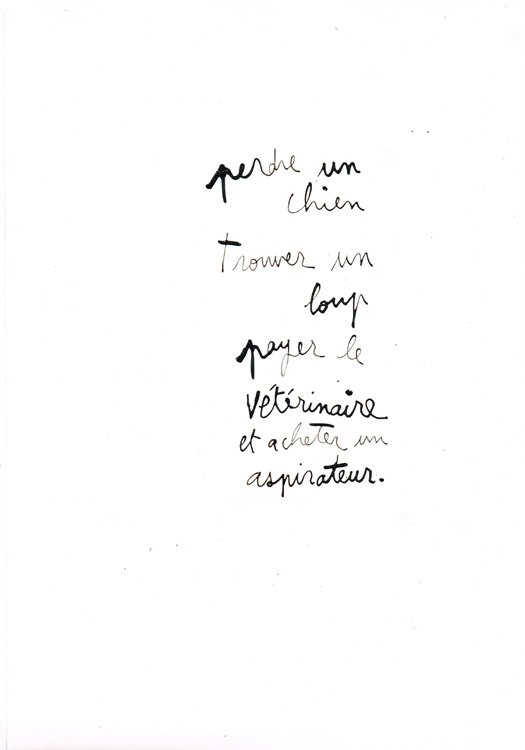 perdre un
chien
trouver un
loup
payer le
vétérinaire
et acheter un
aspirateur.